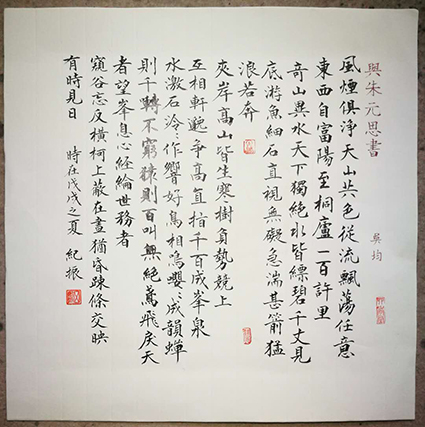 與朱元思書
吳均
風煙俱淨天山共色從流飄蕩任意
東西自富陽至桐廬一百許里
奇山異水天下獨絕水皆縹碧千丈見
底游魚細石直視無礙急湍甚箭猛
浪若奔
夾岸高山皆生寒樹負勢競上
互相軒邈爭高直指千百成峯泉
水激石泠〻作響好鳥相鳴嚶〻成韻蟬
則千轉不窮猿則百叫無絕鳶飛戾天
者望峯息心經綸世務者
窺谷忘反橫柯上蔽在晝猶昏疎條交映
有時見日 時在戊戌之夏 紀振